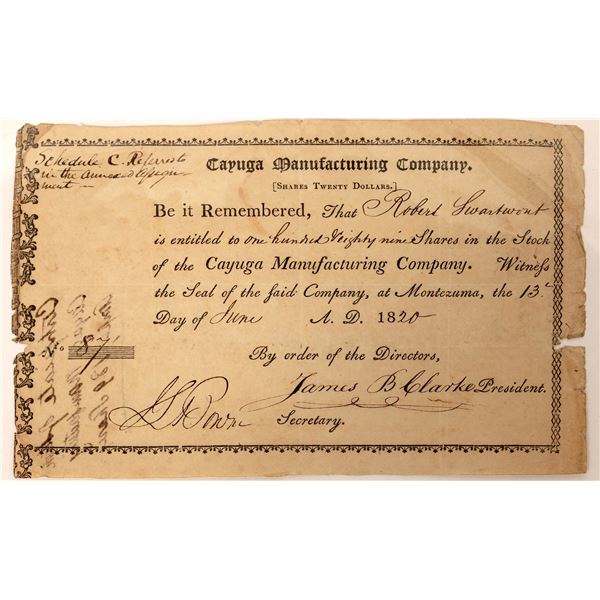 Schedule C. Referred to
in the annexed Assign-
ment —
Cayuga Manufacturing Company.
[SHARES TWENTY DOLLARS.]
Be it Remembered, That Robert Swartwout
is entitled to one hundred & eighty nine Shares in the Stock
of the Cayuga Manufacturing Company. Witneſs
the Seal of the ſaid Company, at Montezuma, the 13th
Day of June A. D. 1820
No. 87
By order of the Directors,
James B Clarke President.
Secretary.